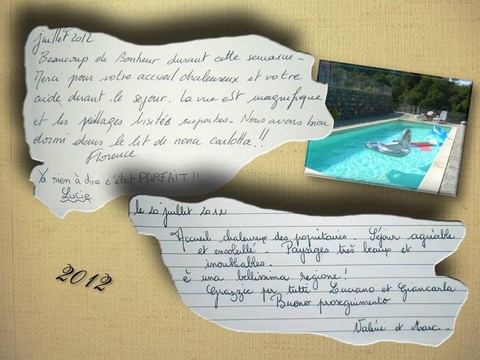 juillet 2012
Beaucoup de Bonheur durant cette semaine -
Merci pour votre accueil chaleureux et votre
aide durant le sejour. La vue est magnifique
et les villages visités superbes. Nous avons bien
dormi dans le lit de nona carlotta !!
Florence
rien à dire c'était PARFAIT !!
Lucie
le 20 juillet 2012
Accueil chaleureux des propriétaires. Séjour agréable
et ensoleillé. Paysages très beaux et
inoubliables.
é una bellissima regione !
Grazzie per tutti Luciano et Giancarla
Buono proseguimento
Valérie et Marc.
2012